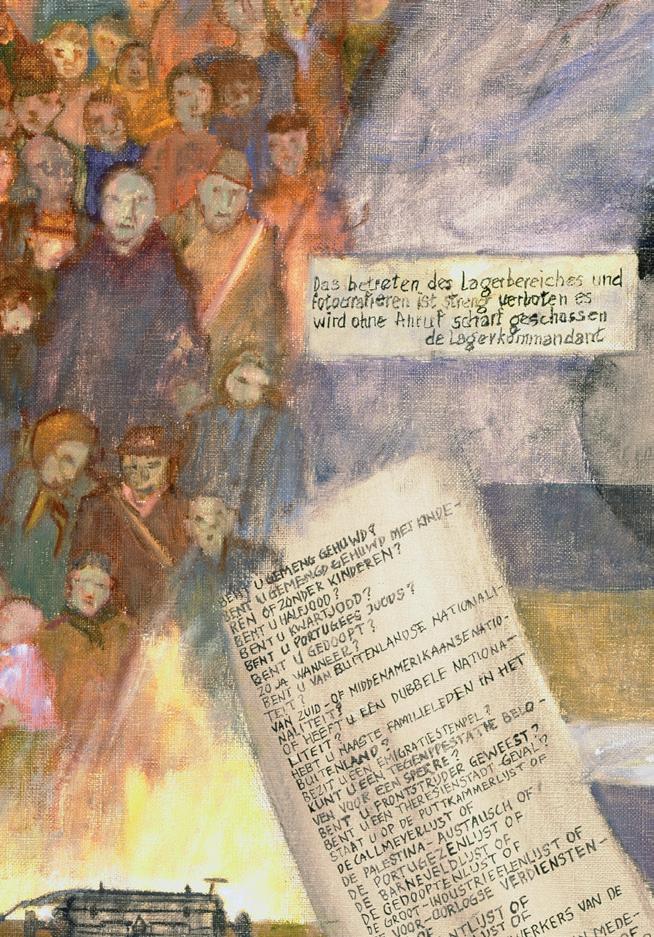 Das betreten des Lagerbereiches und
fotografieren ist streng verboten es
wird ohne Anruf scharf geschossen
de Lagerkommandant
BENT U GEMENG GEHUWD?
BENT U GEMENGD GEHUWD MET KINDE-
REN OF ZONDER KINDEREN?
BENT U HALFJOOD?
BENT U KWARTJODD?
BENT U PORTUGEES JOODS?
BENT U GEDOOPT?
ZO JA WANNEER?
BENT U VAN BUITENLANDSE NATIONALI-
TEIT?
VAN ZUID- OF MIDDENAMERIKAANSE NATIO-
NALITEIT?
OF HEEFT U EEN DUBBELE NATIONA-
LITEIT?
HEBT U NAASTE FAMILIELEDEN IN HET
BUITENLAND?
BEZIT U EEN EMIGRATIESTEMPEL?
KUNT U EEN TEGENPRESTATIE BELO-
VEN VOOR EEN SPERRE?
BENT U FRONTSTRIJDER GEWEEST?
BENT U EEN THERESIENSTADT GEVAL?
STAAT U OP DE PUTTKAMMERLIJST OF
DE CALLMEYERLIJST OF
DE PALESTINA-AUSTAUSCH OF
DE PORTUGEZENLIJST OF
DE BARNEVELDLIJST OF
DE GEDOOPTENLIJST OF
DE GROOT-INDUSTRIEELENLIJST OF
DE VOOR-OORLOGSE VERDIENSTEN-
NTLIJST OF
ST OF
WERKERS VAN DE
MEDE-